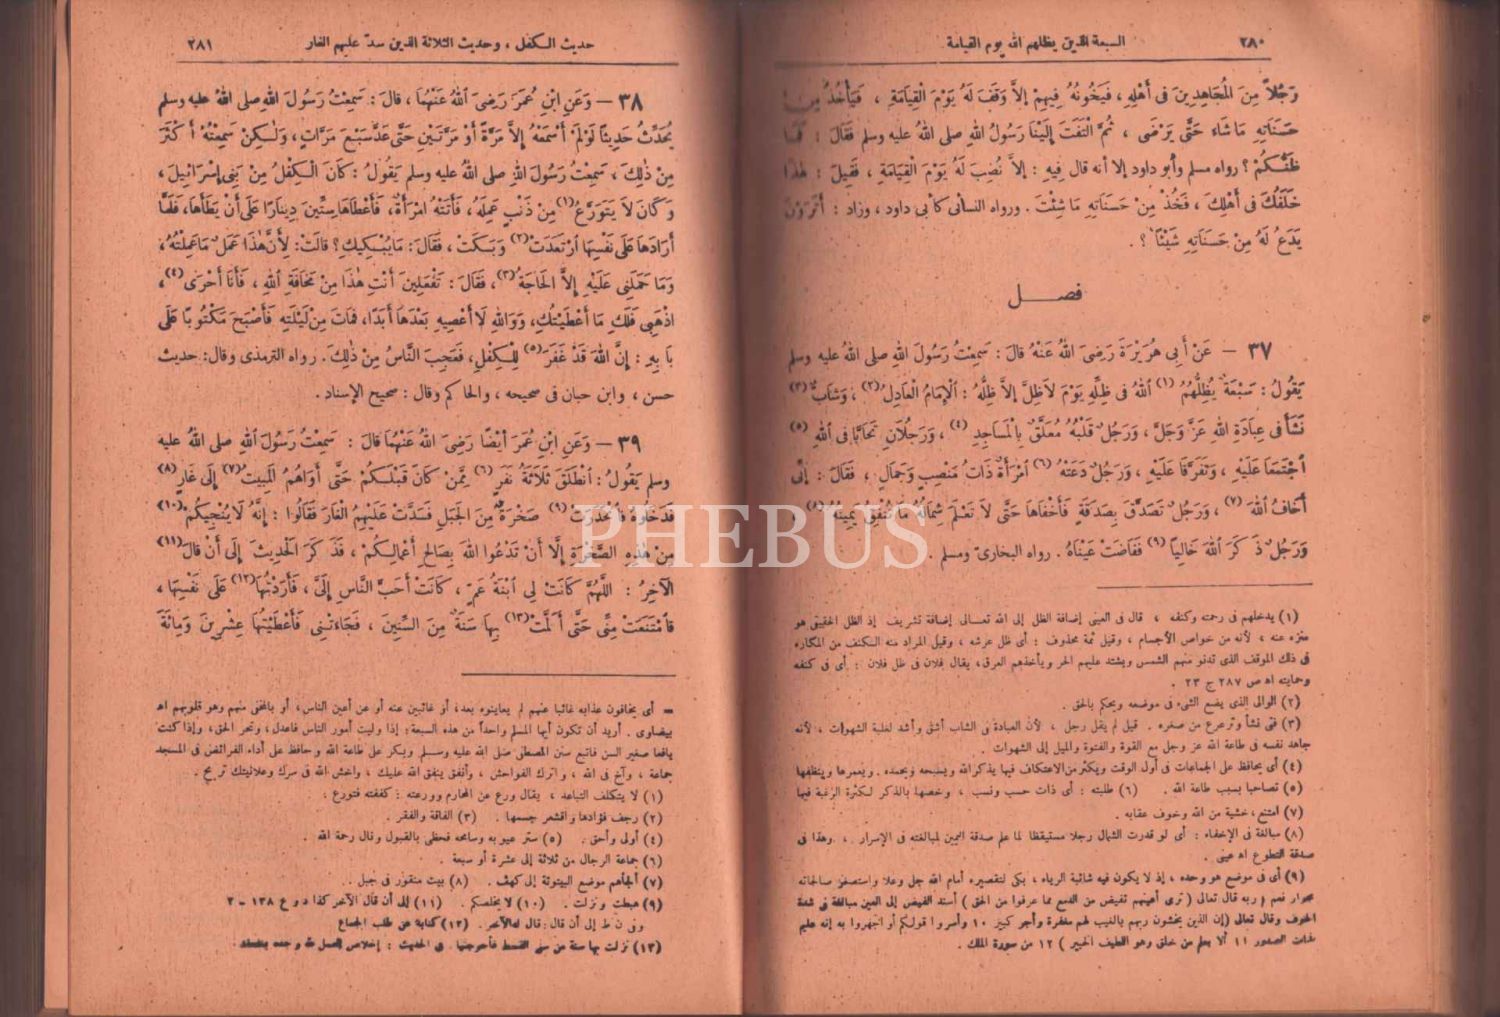 ٢٨٠ السبعة الذين يظلهم الله يوم القيامة
رَجُلاً مِنَ المُجَاهِدِينَ فى أَهْلِهِ، فَيَخُونُهُ فِيهِمْ إلاَّ وَقَفَ لَهُ يَوْمَ الْقِيَامَةِ، فَيَأْخُذُ مِنْ
حَسَنَاتِهِ مَا شَاءَ حَتَّى يَرْضَى، ثُمَّ الْتَفَتَ إِلَيْنَا رَسُولُ اللهِ صلى اللهُ عليه وسلم فَقَالَ: فَمَا
ظَنُّكُمْ؟ رواه مسلم وأبو داود إلا أنه قال فِيهِ: إلاَّ نُصِبَ لَهُ يَوْمَ الْقِيَامَةِ، فَقِيلَ: هٰذَا
خَلَفَكَ فى أَهْلِكَ، فَخُذْ مِنْ حَسَنَاتِهِ مَا شِئْتَ. ورواه النسائى كأبى داود، وزاد: أَتَرَوْنَ
يَدَعُ لَهُ مِنْ حَسَنَاتِهِ شَيْئًا؟.
فصـــل
٣٧ — عَنْ أَبِى هُرَيْرَةَ رَضِىَ اللهُ عَنْهُ قالَ: سَمِعْتُ رَسُولَ اللهِ صلى اللهُ عليه وسلم
يَقُولُ: سَبْعَةٌ يُظِلُّهُمُ (١) اللهُ فى ظِلِّهِ يَوْمَ لاَ ظِلَّ إلاَّ ظِلُّهُ: الْإِمَامُ الْعَادِلُ (٢)، وَشَابٌّ (٣)
نَشَأَ فى عِبَادَةِ اللهِ عَزَّ وَجَلَّ، وَرَجُلٌ قَلْبُهُ مُعَلَّقٌ بِالْمَسَاجِدِ (٤)، وَرَجُلاَنِ تَحَابَّا فى اللهِ (٥)
اجْتَمَعَا عَلَيْهِ، وَتَفَرَّقَا عَلَيْهِ، وَرَجُلٌ دَعَتْهُ (٦) امْرَأَةٌ ذَاتُ مَنْصِبٍ وَجَمَالٍ، فَقَالَ: إِنِّى
أَخَافُ اللهَ (٧)، وَرَجُلٌ تَصَدَّقَ بِصَدَقَةٍ فَأَخْفَاهَا حَتَّى لاَ تَعْلَمَ شِمَالُهُ مَا تُنْفِقُ يَمِينُهُ (٨)،
وَرَجُلٌ ذَكَرَ اللهَ خَالِيًا (٩) فَفَاضَتْ عَيْنَاهُ. رواه البخارىّ ومسلم.
(١) يدخلهم فى رحمته وكنفه، قال فى العينى إضافة الظل إلى الله تعالى إضافة تشريف إذ الظل الحقيقى هو
منزه عنه، لأنه من خواص الأجسام، وقيل ثمة محذوف: أى ظل عرشه، وقيل المراد منه التكنف من المكاره
فى ذلك الموقف الذى تدنو منهم الشمس ويشتد عليهم الحر ويأخذهم العرق، يقال فلان فى ظل فلان: أى فى كنفه
وحمايته اه ص ٢٨٧ ج ٢٣.
(٢) الوالى الذى يضع الشىء فى موضعه ويحكم بالحق.
(٣) فتى نشأ وترعرع من صغره. قيل لم يقل رجل، لأن العبادة فى الشاب أشق وأشد لغلبة الشهوات، لأنه
جاهد نفسه فى طاعة الله عز وجل مع القوة والفتوة والميل إلى الشهوات.
(٤) أى يحافظ على الجماعات فى أول الوقت ويكثر من الاعتكاف فيها يذكر الله ويسبحه ويحمده. ويعمرها وينظفها
(٥) تصاحبا بسبب طاعة الله. (٦) طلبته: أى ذات حسب ونسب، وخصها بالذكر لكثرة الرغبة فيها
(٧) امتنع، خشية من الله وخوف عقابه.
(٨) مبالغة فى الإخفاء: أى لو قدرت الشمال رجلا مستيقظا لما علم صدقة اليمين لمبالغته فى الإسرار، وهذا فى
صدقة التطوع اه عينى.
(٩) أى فى موضع هو وحده، إذ لا يكون فيه شائبة الرياء، بكى لتقصيره أمام الله جل وعلا واستصغر صالحاته
بجوار نعم ربه قال تعالى (ترى أعينهم تفيض من الدمع مما عرفوا من الحق) أسند الفيض إلى العين مبالغة فى شدة
الخوف وقال تعالى (إن الذين يخشون ربهم بالغيب لهم مغفرة وأجر كبير ١٠ وأسروا قولكم أو اجهروا به إنه عليم
بذات الصدور ١١ ألا يعلم من خلق وهو اللطيف الخبير) ١٢ من سورة الملك.
حديث الكفل، وحديث الثلاثة الذين سدّ عليهم الغار ٢٨١
٣٨ — وَعَنِ ابْنِ عُمَرَ رَضِىَ اللهُ عَنْهُمَا، قالَ: سَمِعْتُ رَسُولَ اللهِ صلى اللهُ عليه وسلم
يُحَدِّثُ حَدِيثًا لَوْ لَمْ أَسْمَعْهُ إِلاَّ مَرَّةً أَوْ مَرَّتَيْنِ حَتَّى عَدَّ سَبْعَ مَرَّاتٍ، وَلٰكِنْ سَمِعْتُهُ أَكْثَرَ
مِنْ ذٰلِكَ، سَمِعْتُ رَسُولَ اللهِ صلى اللهُ عليه وسلم يَقُولُ: كانَ الْكِفْلُ مِنْ بَنِى إِسْرَائِيلَ،
وَكَانَ لاَ يَتَوَرَّعُ (١) مِنْ ذَنْبٍ عَمِلَهُ، فَأَتَتْهُ امْرَأَةٌ، فَأَعْطَاهَا سِتِّينَ دِينَارًا عَلَى أَنْ يَطَأَهَا، فَلَمَّا
أَرَادَهَا عَلَى نَفْسِهَا ارْتَعَدَتْ (٢) وَبَكَتْ، فَقَالَ: مَا يُبْكِيكِ؟ قالَتْ: لِأَنَّ هٰذَا عَمَلٌ مَا عَمِلْتُهُ،
وَمَا حَمَلَنِى عَلَيْهِ إِلاَّ الحَاجَةُ (٣)، فَقَالَ: تَفْعَلِينَ أَنْتِ هٰذَا مِنْ مَخَافَةِ اللهِ، فَأَنَا أَحْرَى (٤)،
اذْهَبِى فَلَكِ مَا أَعْطَيْتُكِ، وَوَاللهِ لاَ أَعْصِيهِ بَعْدَهَا أَبَدًا، فَمَاتَ مِنْ لَيْلَتِهِ فَأَصْبَحَ مَكْتُوبًا عَلَى
بَابِهِ: إِنَّ اللهَ قَدْ غَفَرَ (٥) لِلْكِفْلِ، فَعَجِبَ النَّاسُ مِنْ ذٰلِكَ. رواه الترمذى وقال: حديث
حسن، وابن حبان فى صحيحه، والحاكم وقال: صحيح الإسناد.
٣٩ — وَعَنِ ابْنِ عُمَرَ أَيْضًا رَضِىَ اللهُ عَنْهُمَا قالَ: سَمِعْتُ رَسُولَ اللهِ صلى اللهُ عليه
وسلم يَقُولُ: انْطَلَقَ ثَلاَثَةُ نَفَرٍ (٦) مِمَّنْ كَانَ قَبْلَكُمْ حَتَّى أَوَاهُمُ المَبِيتُ (٧) إِلَى غَارٍ (٨)
فَدَخَلُوهُ فَانْحَدَرَتْ (٩) صَخْرَةٌ مِنَ الجَبَلِ فَسَدَّتْ عَلَيْهِمُ الْغَارَ فَقَالُوا: إِنَّهُ لاَ يُنْجِيكُمْ (١٠)
مِنْ هٰذِهِ الصَّخْرَةِ إِلاَّ أَنْ تَدْعُوا اللهَ بِصَالِحِ أَعْمَالِكُمْ، فَذَكَرَ الْحَدِيثَ إِلَى أَنْ قالَ (١١)
الآخِرُ: اللَّهُمَّ كَانَتْ لِى ابْنَةُ عَمٍّ، كَانَتْ أَحَبَّ النَّاسِ إِلَىَّ، فَأَرَدْتُهَا (١٢) عَلَى نَفْسِهَا،
فَامْتَنَعَتْ مِنِّى حَتَّى أَلَمَّتْ (١٣) بِهَا سَنَةٌ مِنَ السِّنِينَ، فَجَاءَتْنِى فَأَعْطَيْتُهَا عِشْرِينَ وَمِائَةَ
— أى يخافون عذابه غائبا عنهم لم يعاينوه بعد، أو غائبين عنه أو عن أعين الناس، أو بالمخفى منهم وهو قلوبهم اه
بيضاوى. أريد أن تكون أيها المسلم واحداً من هذه السبعة: إذا وليت أمور الناس فاعدل، وتحر الحق، وإذا كنت
يافعا صغير السن فاتبع سنن المصطفى صلى الله عليه وسلم وبكر على طاعة الله وحافظ على أداء الفرائض فى المسجد
جماعة، وآخ فى الله، واترك الفواحش، وأنفق ينفق الله عليك، واخش الله فى سرك وعلانيتك تربح.
(١) لا يتكلف التباعد، يقال ورع عن المحارم وورعته: كففته فتورع.
(٢) رجف فؤادها واقشعر جسمها. (٣) الفاقة والفقر.
(٤) أولى وأحق. (٥) ستر عيوبه وسامحه فحظى بالقبول ونال رحمة الله
(٦) جماعة الرجال من ثلاثة إلى عشرة أو سبعة.
(٧) ألجأهم موضع البيتوتة إلى كهف. (٨) بيت منقور فى جبل.
(٩) هبطت ونزلت. (١٠) لا يخلصكم. (١١) إلى أن قال الآخر كذا د و ع ١٣٨ — ٢
وفى ن ط إلى أن قال: قال له الآخر. (١٢) كناية عن طلب الجماع
(١٣) نزلت بها سنة من سنى القحط فأحوجتها. وفى الحديث: إخلاص العمل لله وحده
PHEBUS